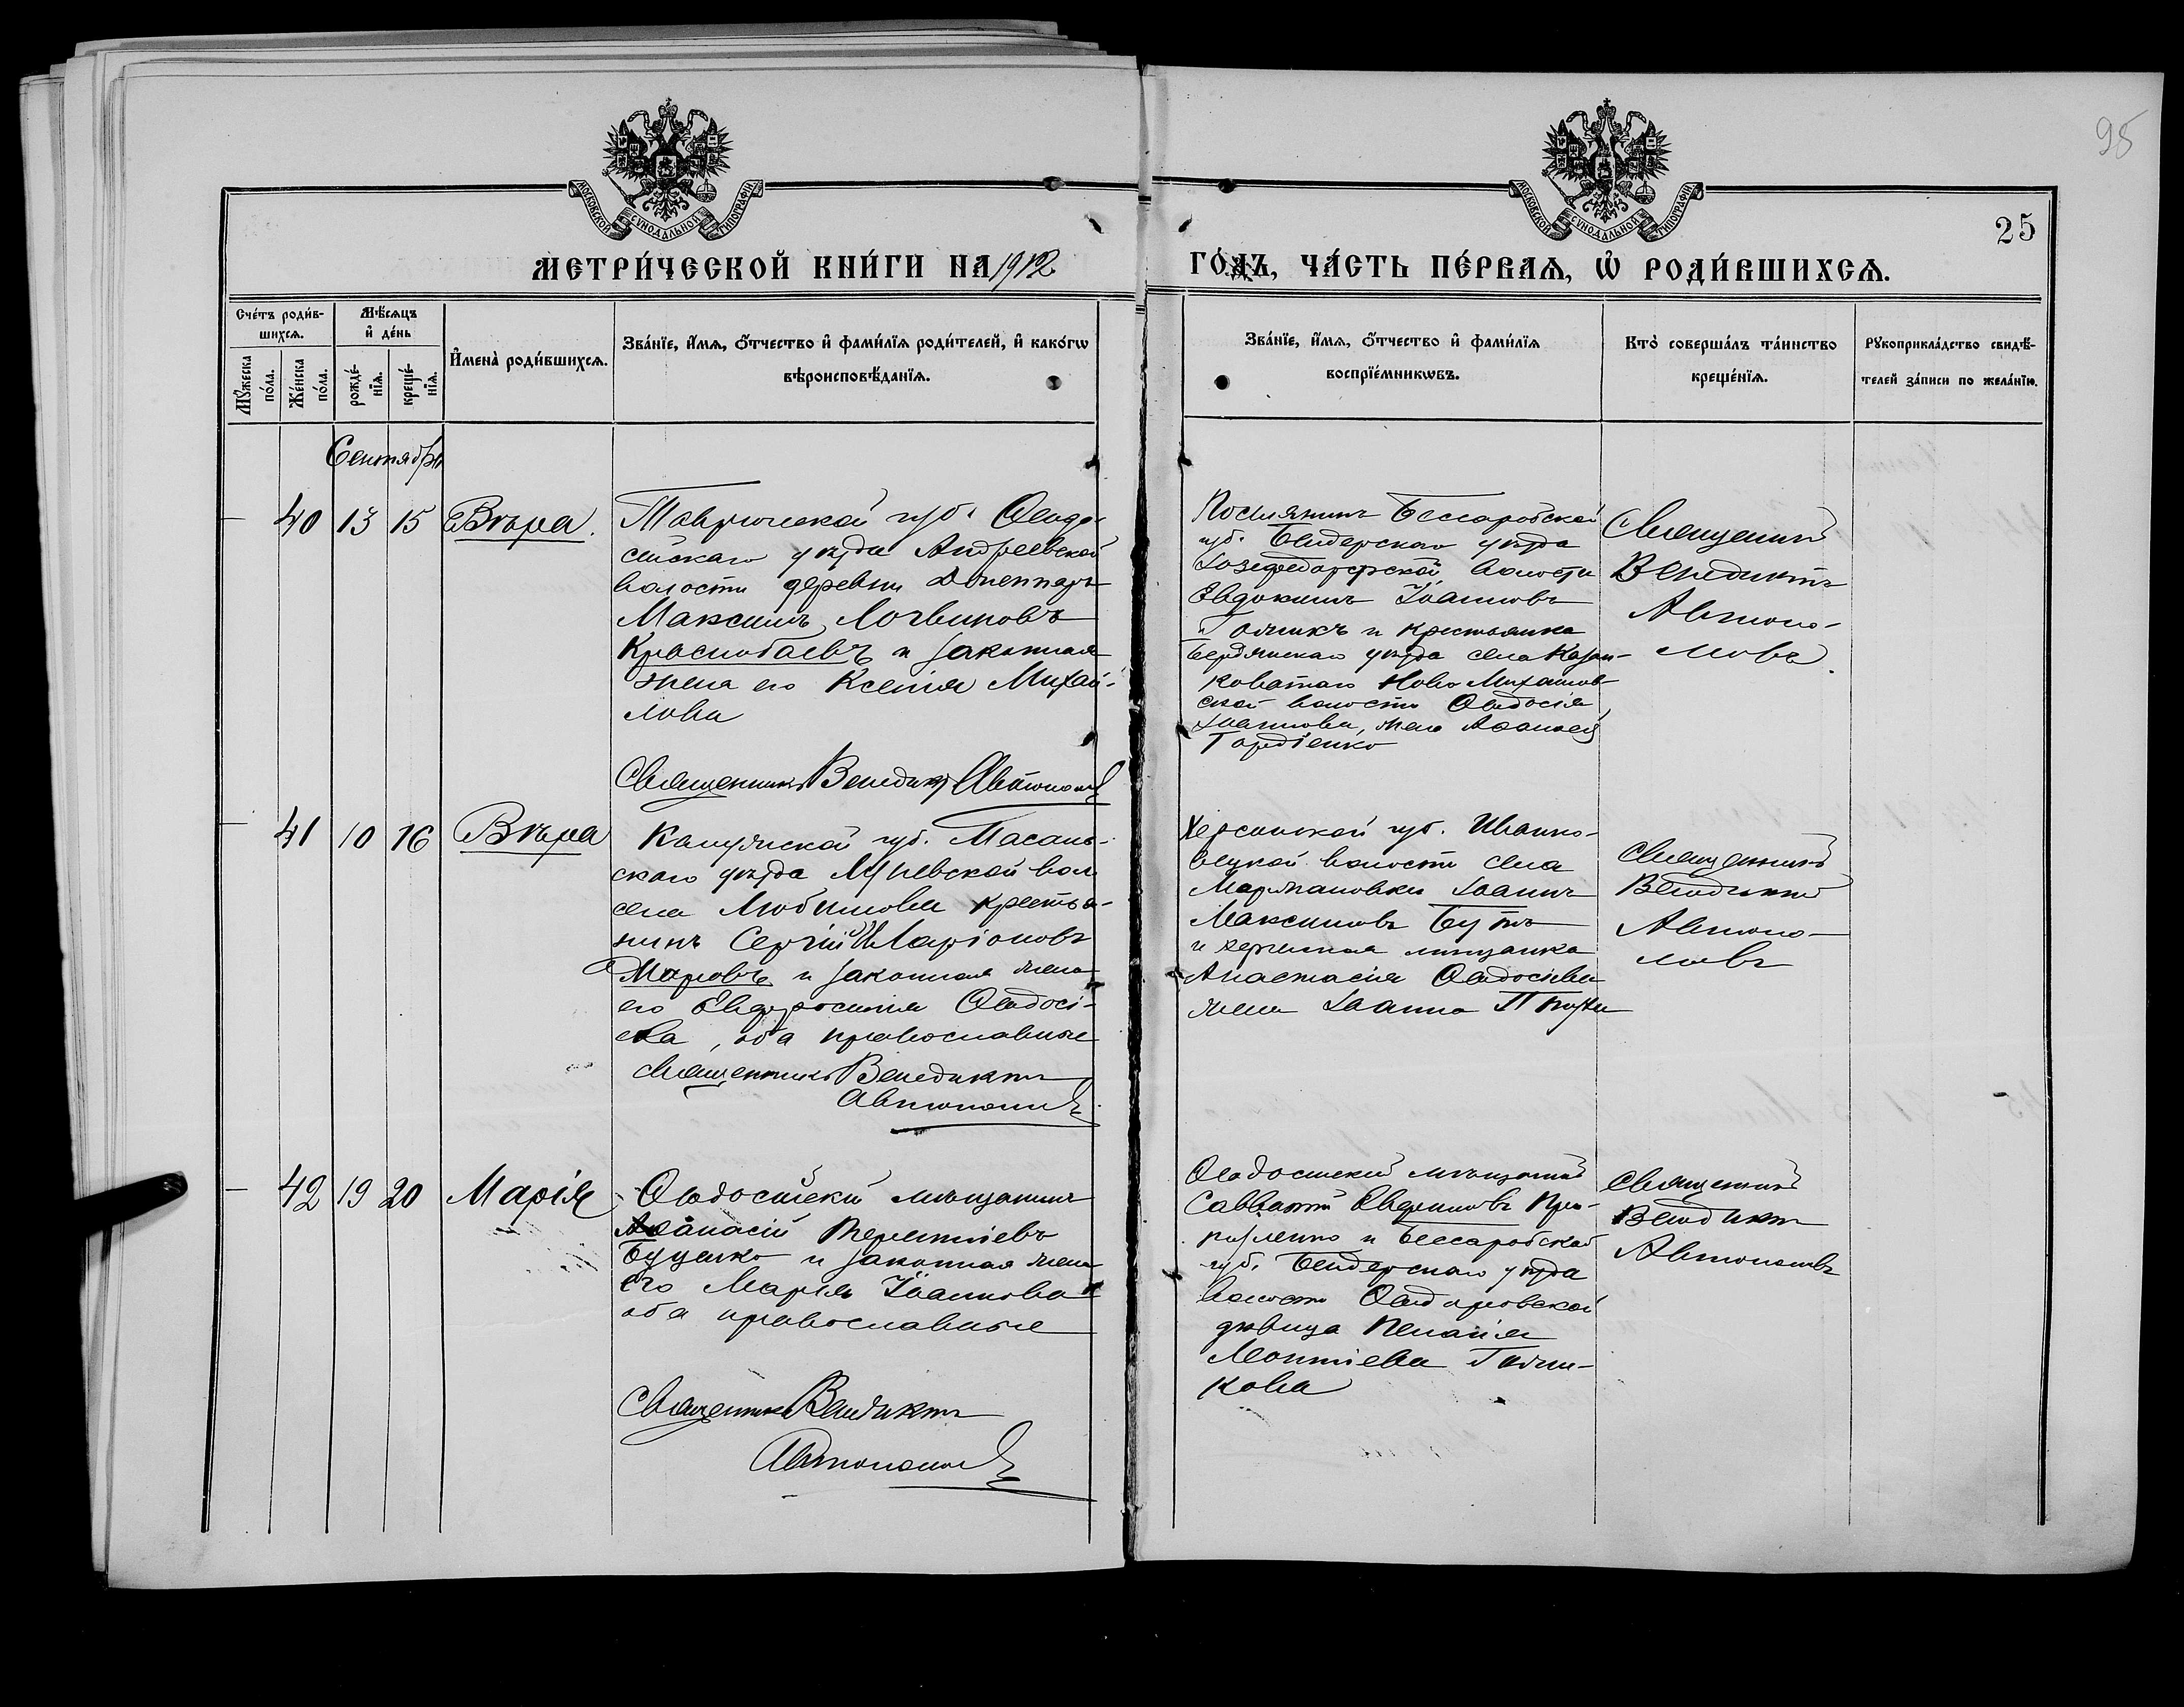 95
МОСКОВСКОЙ СУНОДАЛЬНОЙ ТИПОГРАФІИ
МОСКОВСКОЙ СУНОДАЛЬНОЙ ТИПОГРАФІИ
25
МЕТРИ́ЧЕСКОЙ КНИ́ГИ НА 1912
ГО́ДЪ, ЧА́СТЬ ПЕ́РВАѦ, Ѡ҆ РОДИ́ВШИХСѦ.
Сче́тъ роди́в-
шихсѧ.
Мѣ́сѧцъ
и҆ де́нь
Мꙋ́жеска
по́ла.
Же́нска
по́ла.
рожде́-
нїѧ.
креще́-
нїѧ.
И҆мена̀ роди́вшихсѧ.
Зва́нїе, и҆́мѧ, ѻ҆́тчество и҆ фами́лїѧ роди́телей, и҆ како́гѡ
вѣроисповѣ́данїѧ.
Зва́нїе, и҆́мѧ, ѻ҆́тчество и҆ фами́лїѧ
воспрїе́мникѡвъ.
Кто̀ соверша́лъ та́инство
креще́нїѧ.
Рꙋкоприкла́дство свидѣ́-
телей за́писи по жела́нїю.
Сентябрь
40 13 15 Вѣра.
Таврической губ. Ѳеодо-
сійскаго уѣзда Андреевской
волости деревни
Максимъ Логвиновъ
Краснобаевъ и законная
жена его Ксенія Михай-
лова
Священникъ Венедиктъ Автономовъ
Поселянинъ Бессарабской
губ. Бендерскаго уѣзда
волости
Евдокимъ Іоанновъ
и крестьянка
Бердянскаго уѣзда села Казан-
коватаго Ново Михайлов-
ской волости Ѳеодосія
Іоаннова, жена Аѳанасія
Гордіенко
Священникъ
Венедиктъ
Автоно-
мовъ
41 10 16 Вѣра
Калужской губ. Масаль-
скаго уѣзда вол.
села крестья-
нинъ Сергій Иларіоновъ
и законная жена
его Евфросинія Ѳеодосі-
ева, оба православные
Священникъ Венедиктъ
Автономовъ
Херсонской губ. Ивано-
вецкой волости села
Іоаннъ
Максимовъ Бутъ
и мѣщанка
Анастасія Ѳеодосіева
жена Іоанна
Священникъ
Венедиктъ
Автоно-
мовъ
42 19 20 Марія
Ѳеодосійскій мѣщанинъ
Аѳанасій Терентіевъ
Буценко и законная жена
его Марія Іоаннова
оба православные
Священникъ Венедиктъ
Автономовъ
Ѳеодосійскій мѣщанинъ
Савватій
и Бессарабской
губ. Бендерскаго уѣзда
волости Ѳеодоровской
дѣвица Пелагія
Леонтіева Голи-
кова
Священникъ
Венедиктъ
Автономовъ